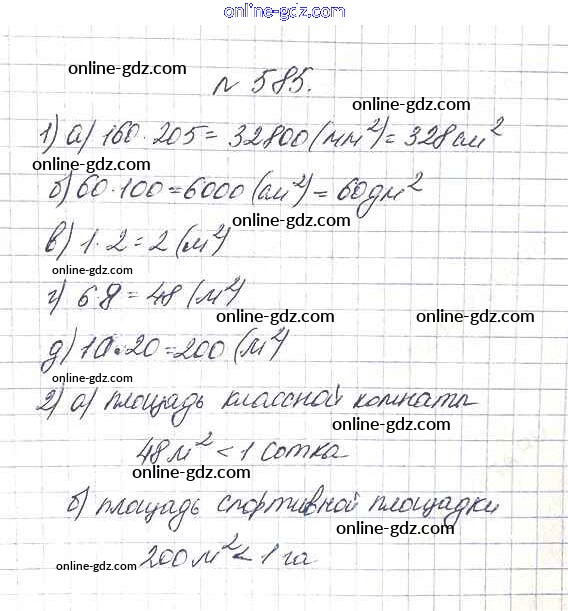 online-gdz.com
online-gdz.com
№ 585.
online-gdz.com
1) а) 160 · 205 = 32800 (мм²) = 328 см²
online-gdz.com
б) 60 · 100 = 6000 (см²) = 60 дм²
online-gdz.com
в) 1 · 2 = 2 (м²)
online-gdz.com
г) 6 · 8 = 48 (м²)
online-gdz.com
д) 10 · 20 = 200 (м²)
online-gdz.com
online-gdz.com
2) а) площадь классной комнаты
online-gdz.com
48 м² < 1 сотка
online-gdz.com
б) площадь спортивной площадки
online-gdz.com
200 м² < 1 га
online-gdz.com